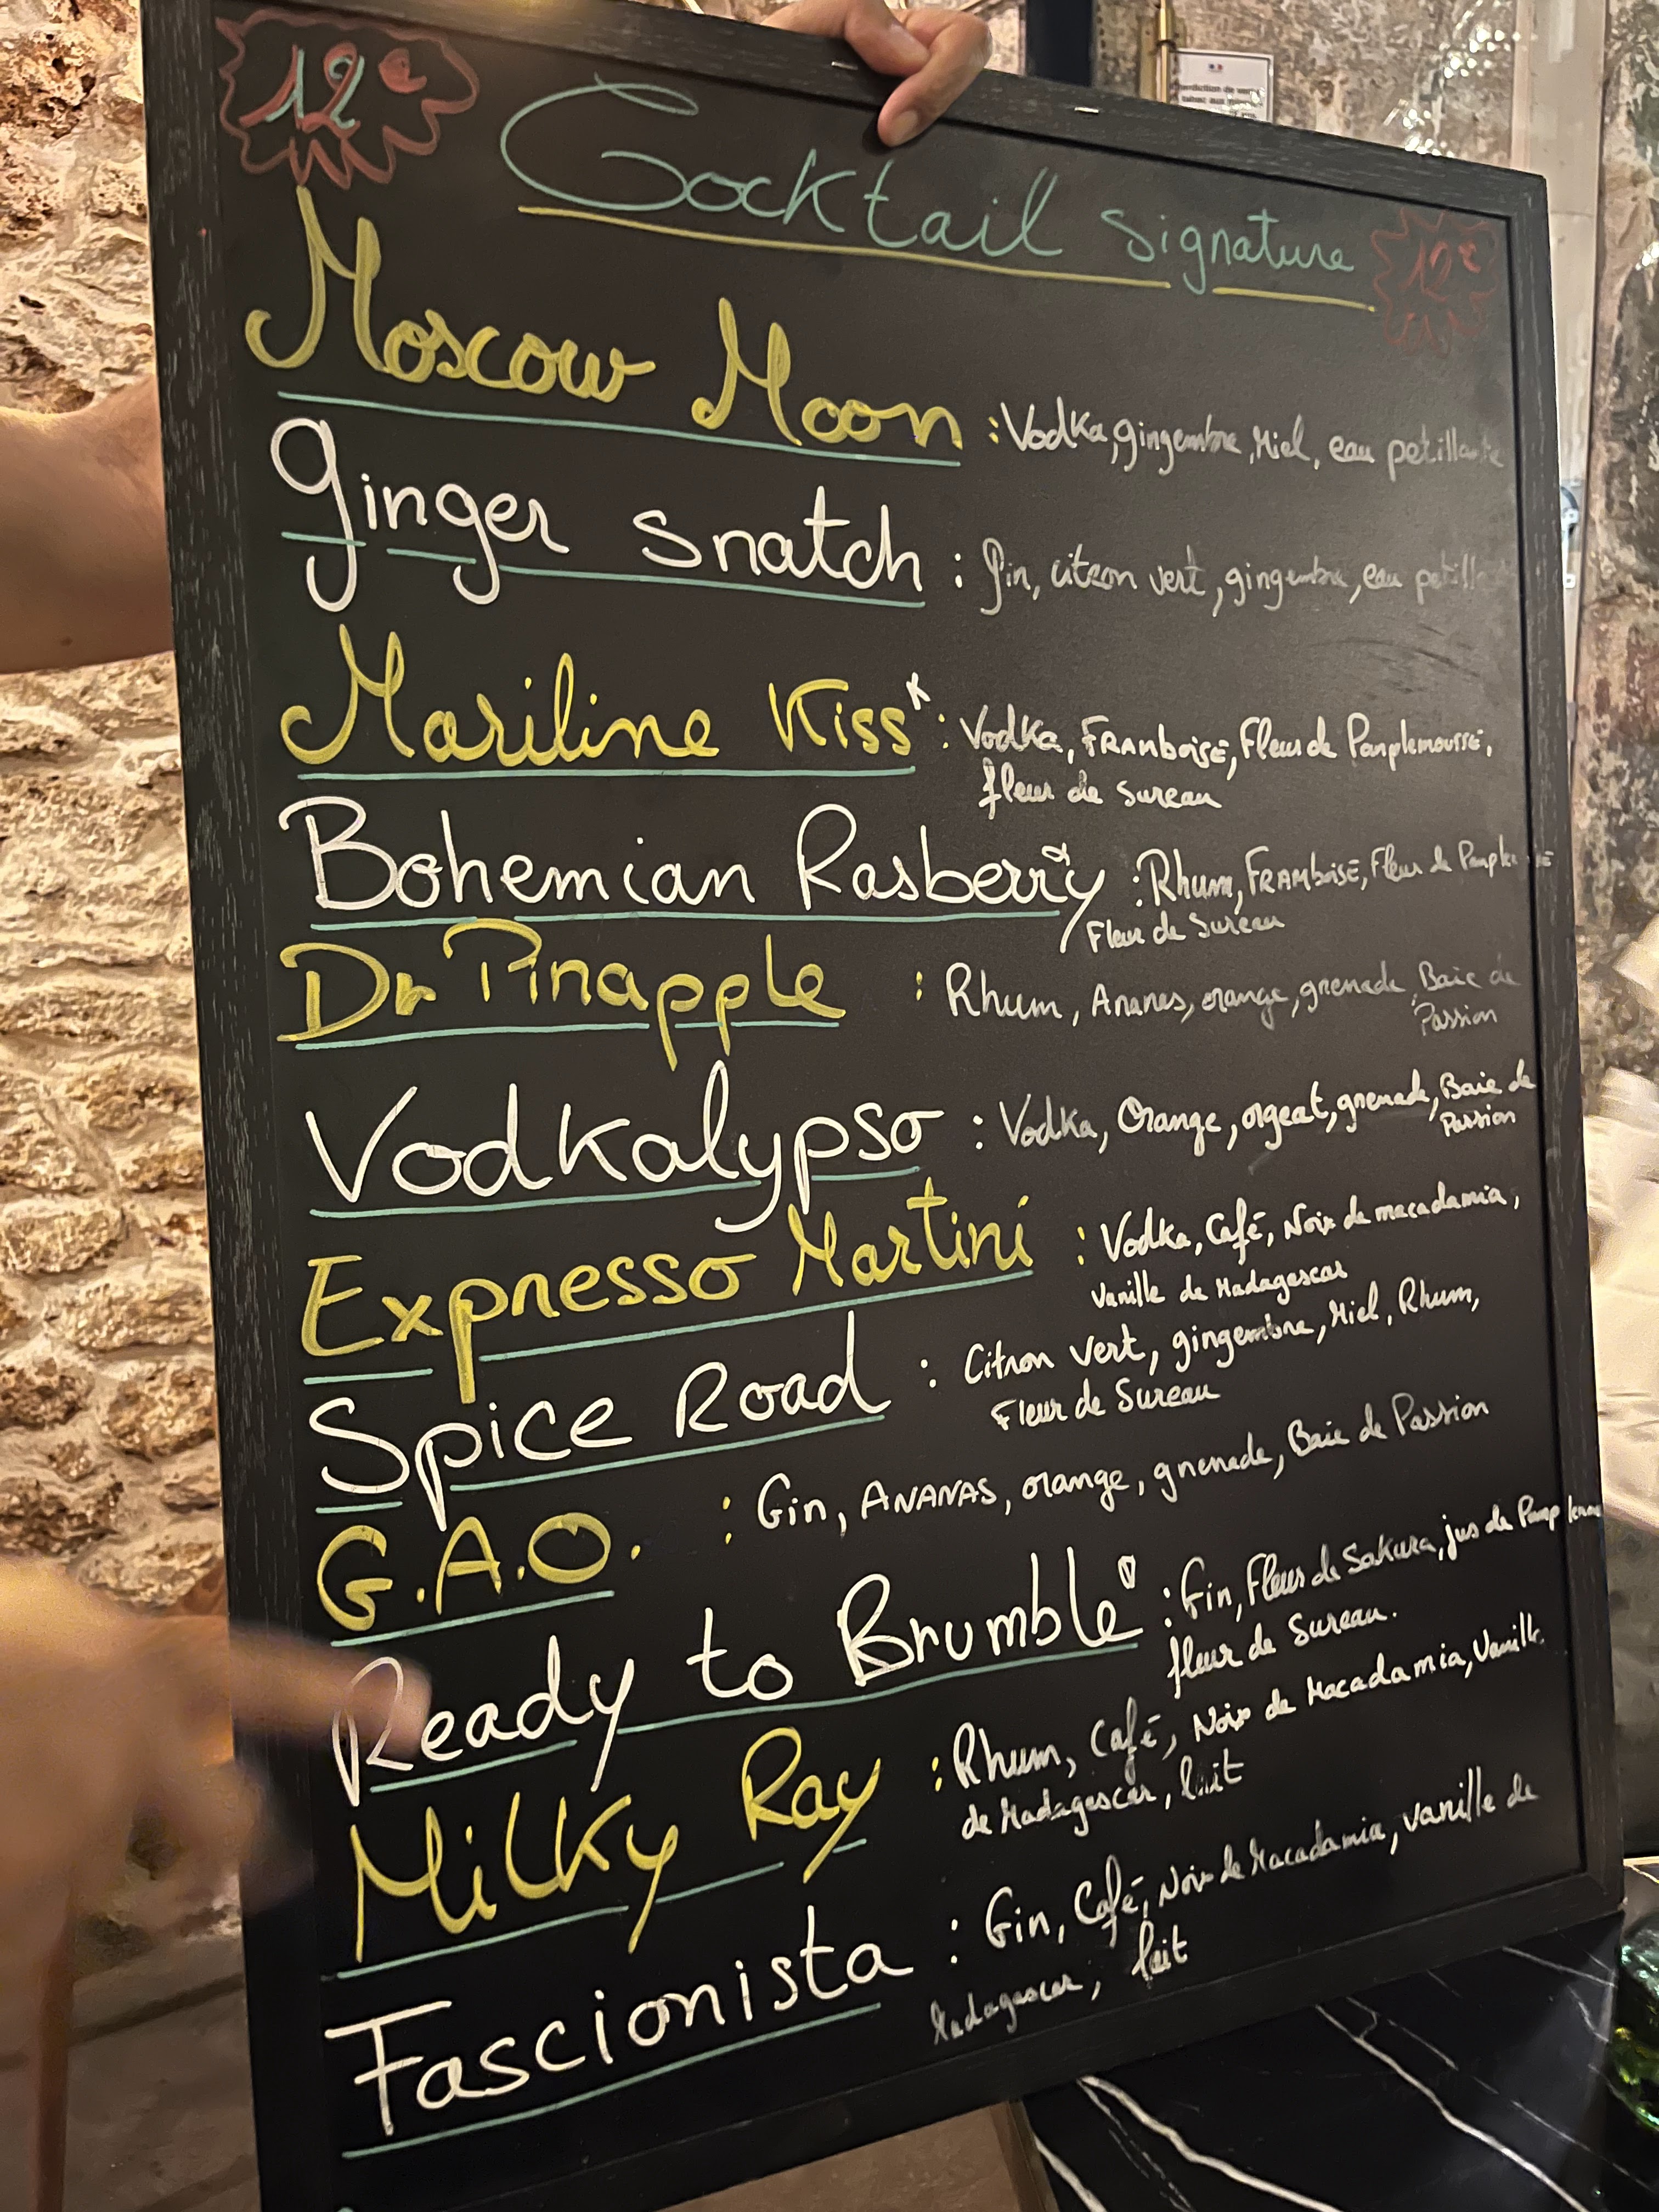 12€
Cocktail Signature
12€
Moscow Moon : Vodka, gingembre, Miel, eau petillante
ginger snatch : gin, citron vert, gingembre, eau petill
Mariline Kiss : Vodka, FRAMboisE, Fleur de Pamplemousse,
fleur de Sureau
Bohemian Rasberry : Rhum, FRAMboisE, Fleur de
Fleur de Sureau
Dr Pinapple : Rhum, Ananas, orange, grenade, Baie de
Passion
Vodkalypso : Vodka, Orange, orgeat, grenade, Baie de
Passion
Expresso Martini : Vodka, Café, Noix de macadamia,
Vanille de Madagascar
Spice Road : Citron vert, gingembre, Miel, Rhum,
Fleur de Sureau
G.A.O. : Gin, ANANAS, orange, grenade, Baie de Passion
Ready to Brumble : Gin, Fleur de Sakura, jus de
fleur de Sureau.
Milky Ray : Rhum, Café, Noix de Macadamia, Vanille
de Madagascar, lait
Fascionista : Gin, Café, Noix de Macadamia, vanille de
Madagascar, lait